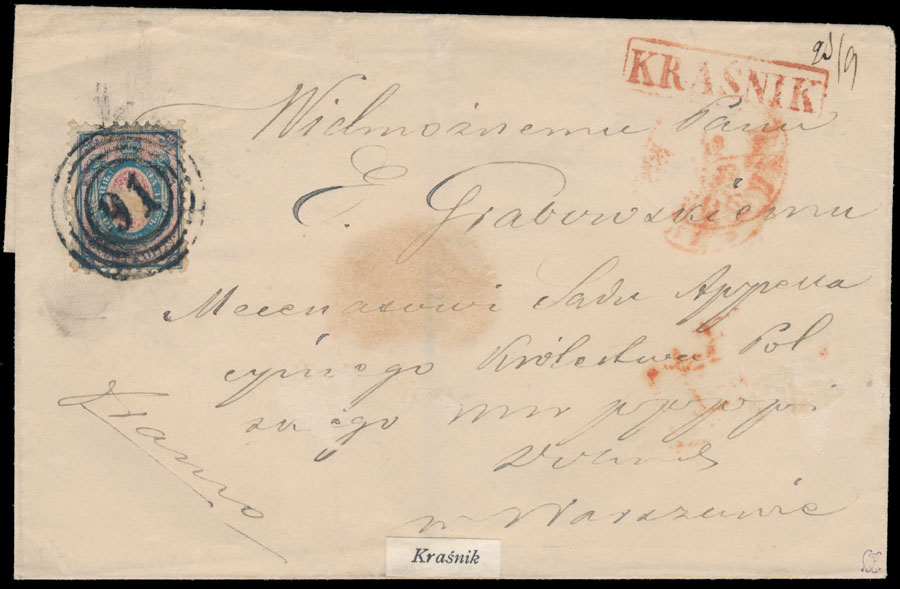 KRAŚNIK
91
Wielmożnemu Panu
E. Grabowskiemu
Mecenasowi Sadu Appella
cyjnego Królestwa Pol
skiego
w Warszawie
Franco
Kraśnik